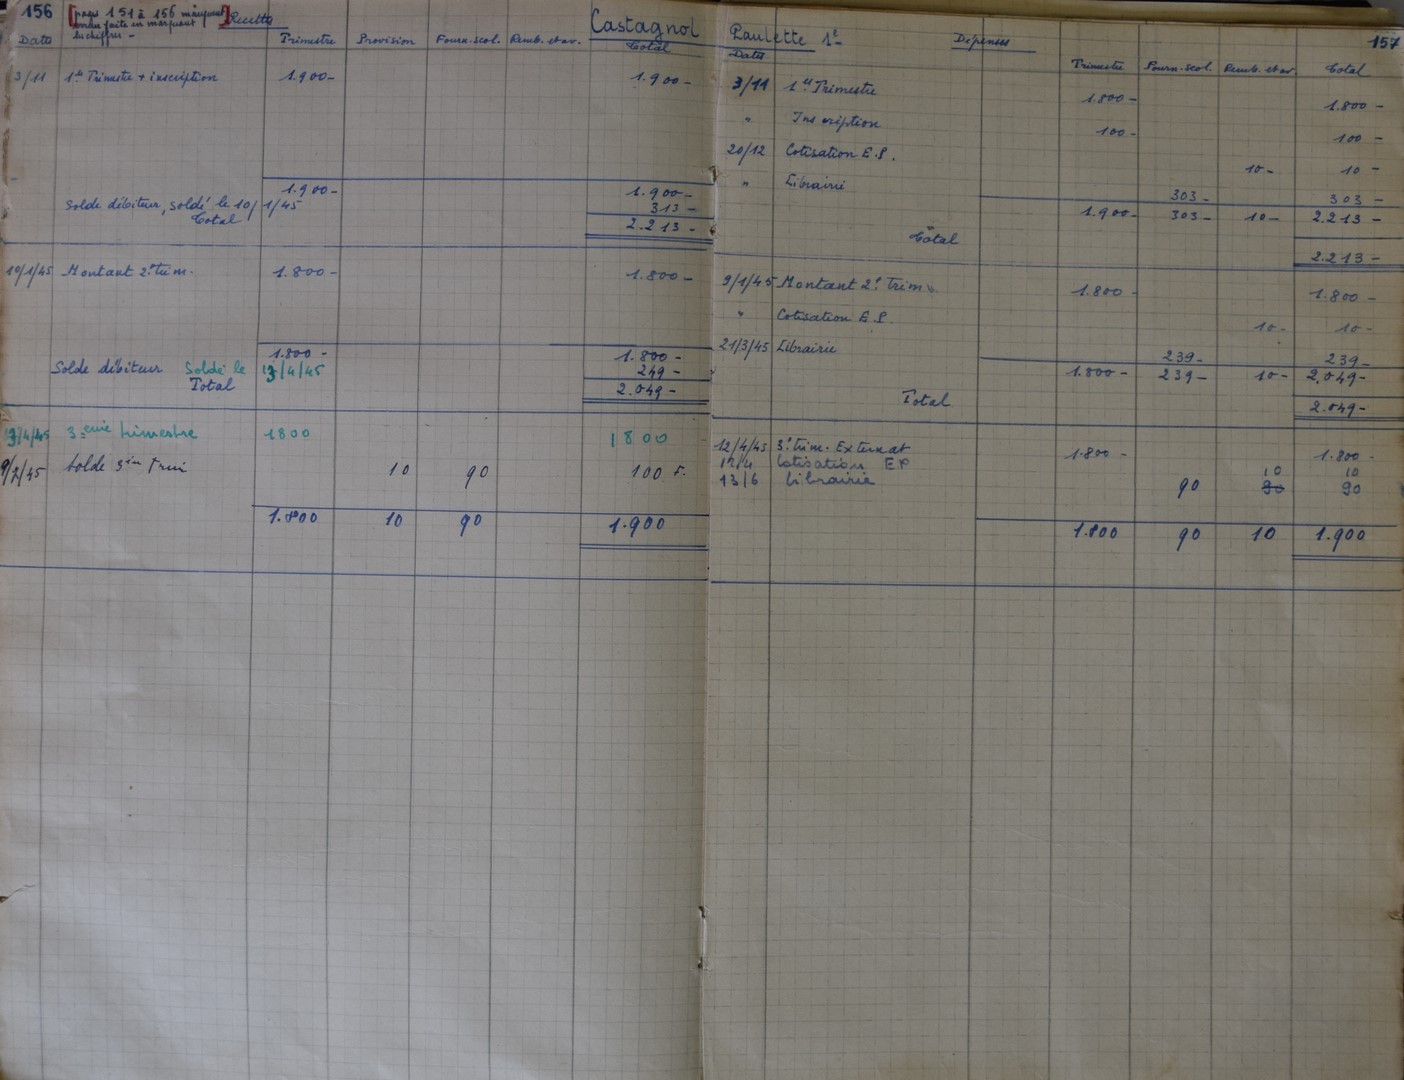 156 [pages 151 à 156 manquent Recettes Castagnol
erreur faite en marquant
les chiffres -]
Dates Trimestre Provision Fourn. scol. Remb. et av. Total
3/11 1er Trimestre + inscription 1.900- 1.900-
1.900- 1.900-
Solde débiteur, soldé le 10/1/45 313-
Total 2.213-
10/1/45 Montant 2e trim. 1.800- 1.800-
1.800- 1.800-
Solde débiteur Soldé le 13/4/45 249-
Total 2.049-
13/4/45 3.eme trimestre 1800 1800
9/2/45 Solde 3in 10 90 100 F.
1.800 10 90 1.900
Paulette 1e Dépenses 157
Dates Trimestre Fourn. scol. Remb. et av. Total
3/11 1er Trimestre 1.800- 1.800-
" Inscription 100- 100-
20/12 Cotisation E.P. 10- 10-
" Librairie 303- 303-
1.900- 303- 10- 2.213-
Total 2.213-
9/1/45 Montant 2e Trim. 1.800- 1.800-
" Cotisation E.P. 10- 10-
21/3/45 Librairie 239- 239-
1.800- 239- 10- 2.049-
Total 2.049-
12/4/45 3e trim. Externat 1.800- 1.800-
12/4 Cotisation EP 10 10
13/6 Librairie 90 90 90
1.800 90 10 1.900